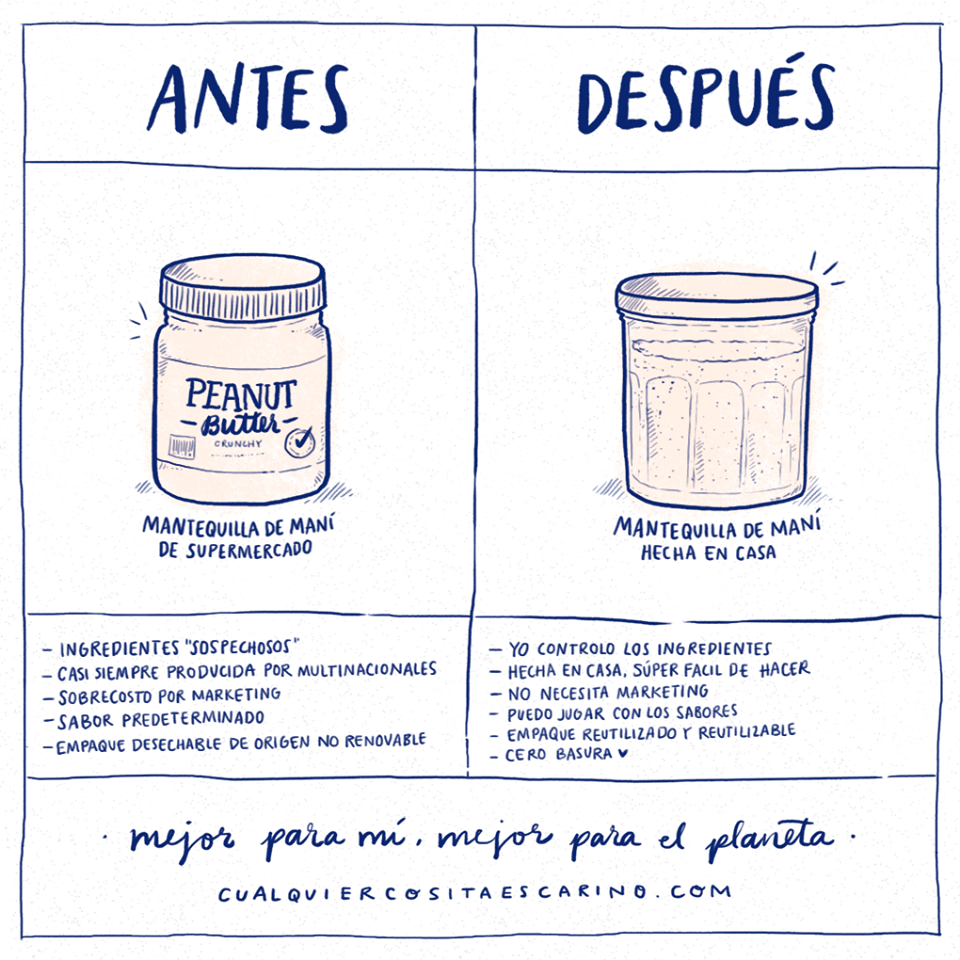 ANTES
DESPUÉS
PEANUT
Butter
CRUNCHY
MANTEQUILLA DE MANÍ
DE SUPERMERCADO
MANTEQUILLA DE MANÍ
HECHA EN CASA
- INGREDIENTES "SOSPECHOSOS"
- CASI SIEMPRE PRODUCIDA POR MULTINACIONALES
- SOBRECOSTO POR MARKETING
- SABOR PREDETERMINADO
- EMPAQUE DESECHABLE DE ORIGEN NO RENOVABLE
- YO CONTROLO LOS INGREDIENTES
- HECHA EN CASA, SÚPER FACIL DE HACER
- NO NECESITA MARKETING
- PUEDO JUGAR CON LOS SABORES
- EMPAQUE REUTILIZADO Y REUTILIZABLE
- CERO BASURA ♥
· mejor para mí, mejor para el planeta ·
CUALQUIERCOSITAESCARINO.COM